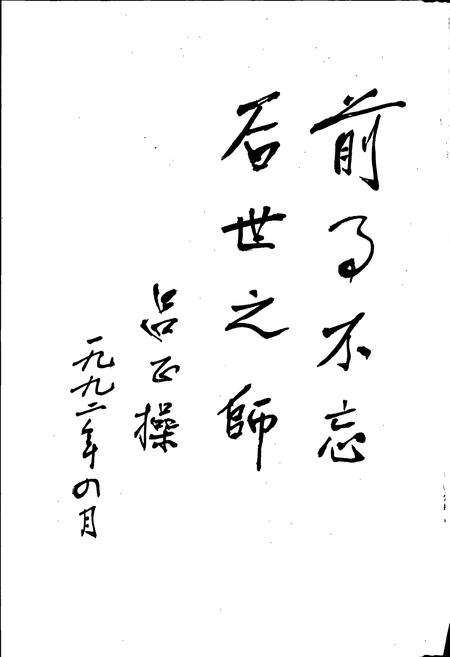 前事不忘
后世之师
吕正操
一九九二年四月